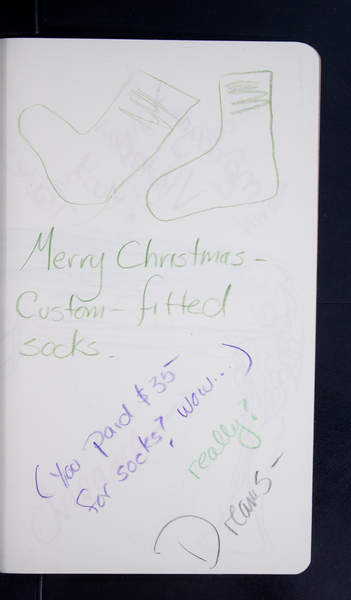 Merry Christmas -
Custom - fitted
socks.
(You paid $35
for socks? wow...)
really?
Dreams -